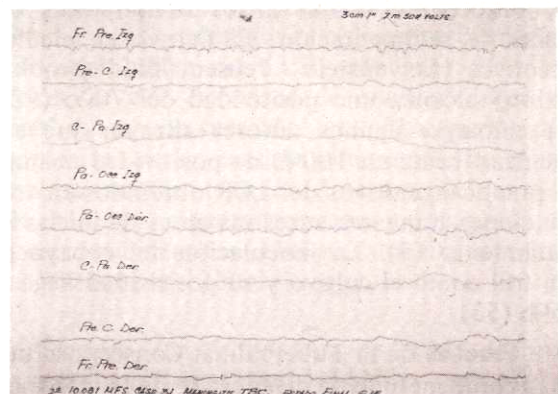 3 cm 1" 7 m 50 V VOLTS
Fr. Pre. Izq
Pre-C. Izq
C-Pa Izq
Pa-Occ Izq
Pa-Occ Der.
C-Pa Der
Pre.C. Der.
Fr. Pre. Der
10.081 MFS CASO TBC. ESTADO FINAL